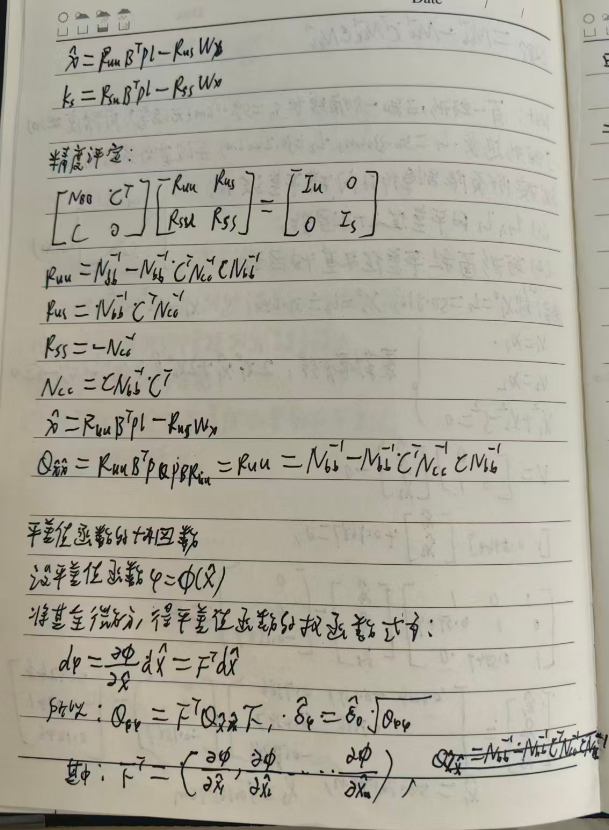 Date / /
x̂ = Ruu BᵀPl - Rus Wx
ks = Rsu BᵀPl - Rss Wx
精度评定:
[Nbb Cᵀ; C 0] [Ruu Rus; Rsu Rss] = [Iu 0; 0 Is]
Ruu = Nbb⁻¹ - Nbb⁻¹ Cᵀ Ncc⁻¹ C Nbb⁻¹
Rus = Nbb⁻¹ Cᵀ Ncc⁻¹
Rss = -Ncc⁻¹
Ncc = C Nbb⁻¹ Cᵀ
x̂ = Ruu BᵀPl - Rus Wx
Qx̂x̂ = Ruu BᵀPQPBRuu = Ruu = Nbb⁻¹ - Nbb⁻¹ Cᵀ Ncc⁻¹ C Nbb⁻¹
平差值函数的协因数
设平差值函数 φ = Φ(X̂)
将其全微分, 得平差值函数的权函数式为:
dφ = ∂Φ/∂X̂ dX̂ = Fᵀ dX̂
Qφφ = Fᵀ Qx̂x̂ F, σ̂φ = σ̂0 √Qφφ
其中: Fᵀ = (∂Φ/∂X̂1, ∂Φ/∂X̂2 ... ∂Φ/∂X̂u), Qx̂x̂ = Nbb⁻¹ - Nbb⁻¹ Cᵀ Ncc⁻¹ C Nbb⁻¹